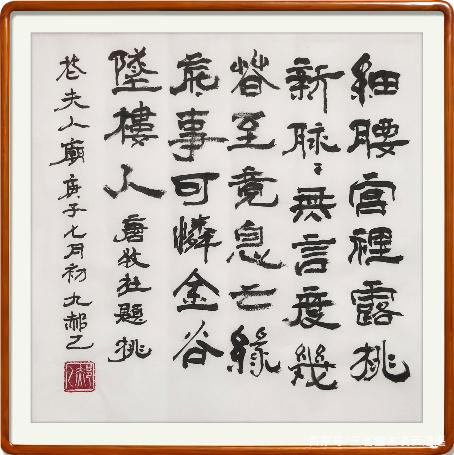 細腰宮裡露桃
新脉〻無言度幾
萅至竟息亡緣
底事可憐金谷
墜樓人 唐牧杜題桃
花夫人廟庚子七月初九郝乙